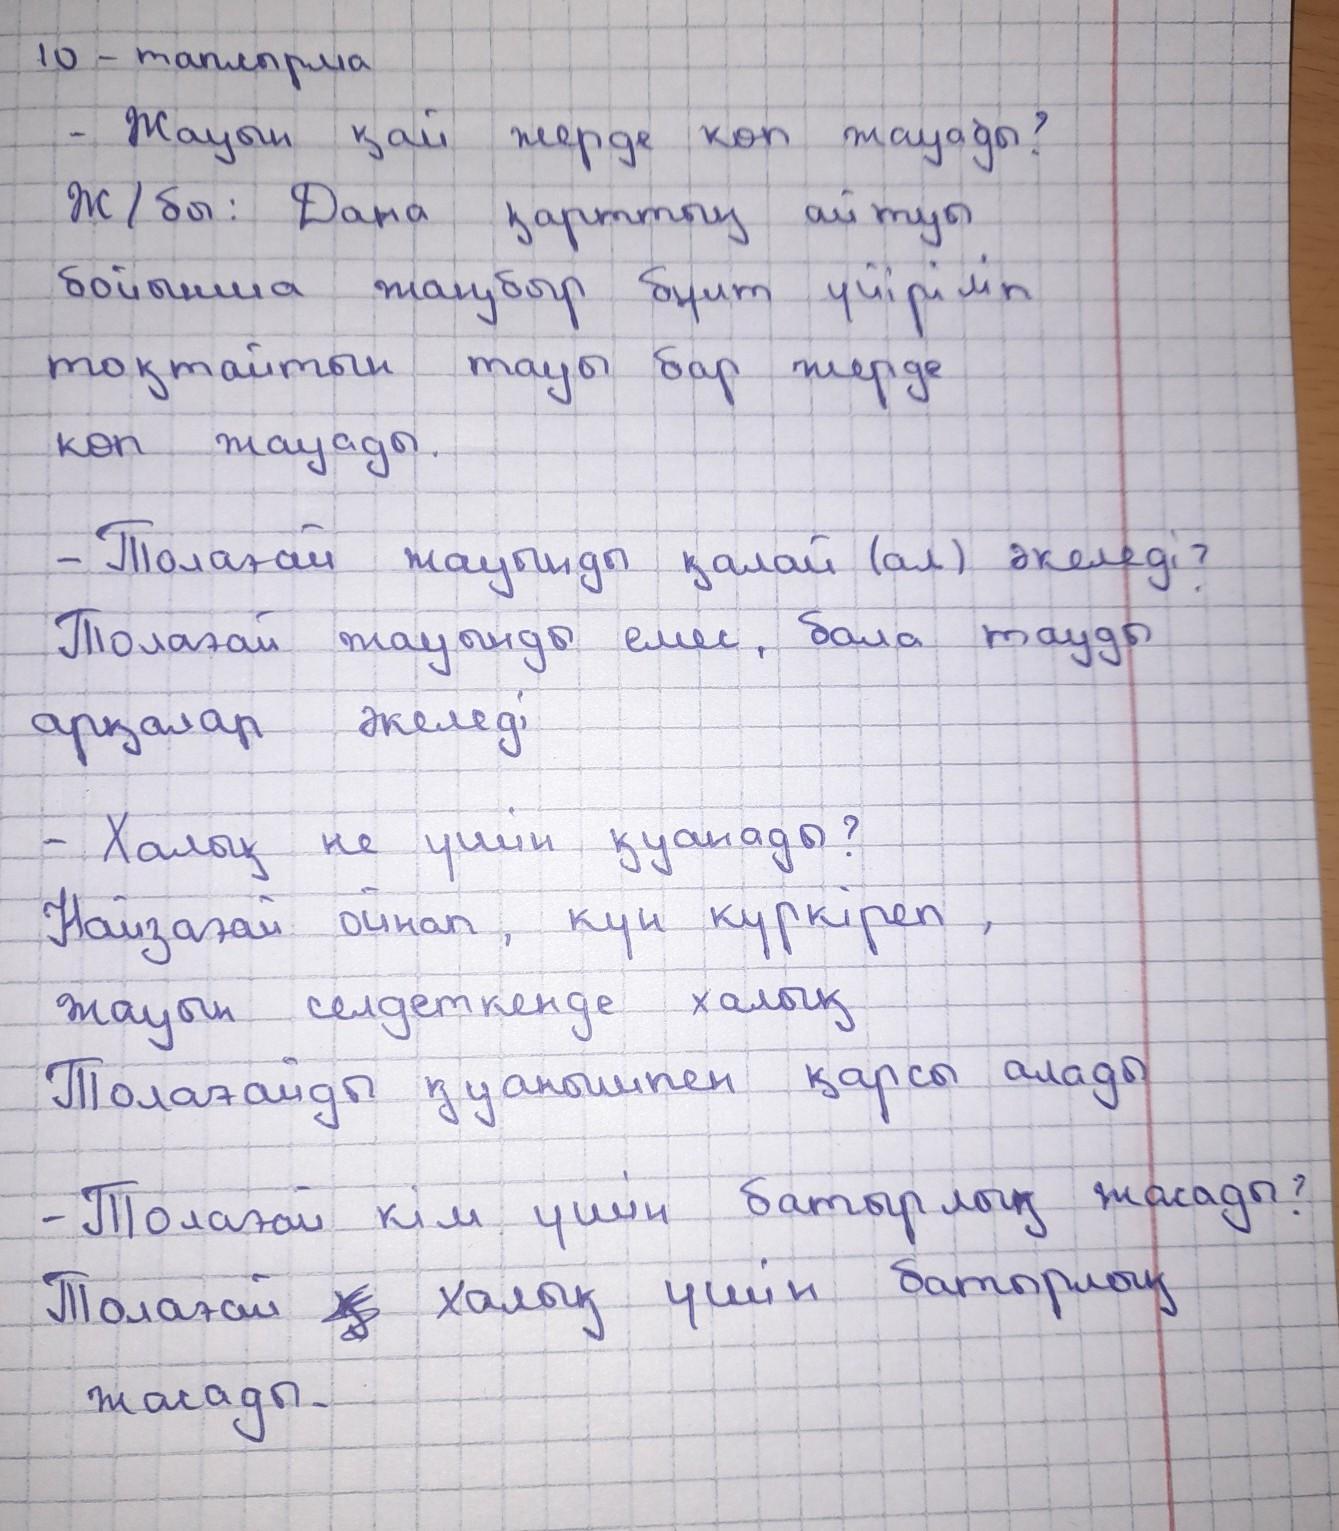 10 - тапсырма
- Жауын қай жерде көп жауады?
Ж/бы: Дана қарттың айтуы
бойынша жаңбыр бұлт үйіріліп
тоқтайтын тауы бар жерде
көп жауады.
- Толағай жауынды қалай (ал) әкеледі?
Толағай жауынды емес, бала тауды
арқалар әкеледі
- Халық не үшін қуанады?
Найзағай ойнап, күн күркіреп,
жауын селдеткенде халық
Толағайды қуанышпен қарсы алады
- Толағай кім үшін батырлық жасады?
Толағай халық үшін батырлық
жасады.